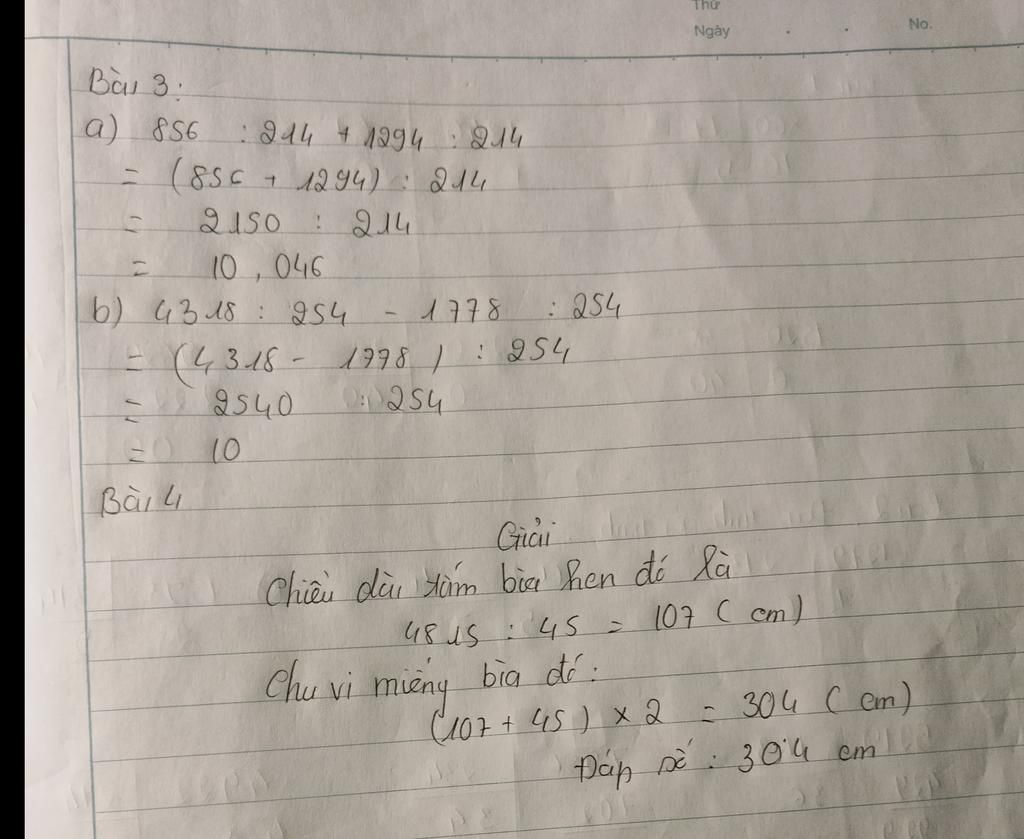 Thứ
Ngày . . No.
Bài 3:
a) 856 : 214 + 1294 : 214
= (856 + 1294) : 214
= 2150 : 214
= 10,046
b) 4318 : 254 - 1778 : 254
= (4318 - 1778) : 254
= 2540 : 254
= 10
Bài 4
Giải
Chiều dài tấm bìa hen đó là
4815 : 45 = 107 (cm)
Chu vi miếng bìa đó:
(107 + 45) × 2 = 304 (cm)
Đáp số : 304 cm